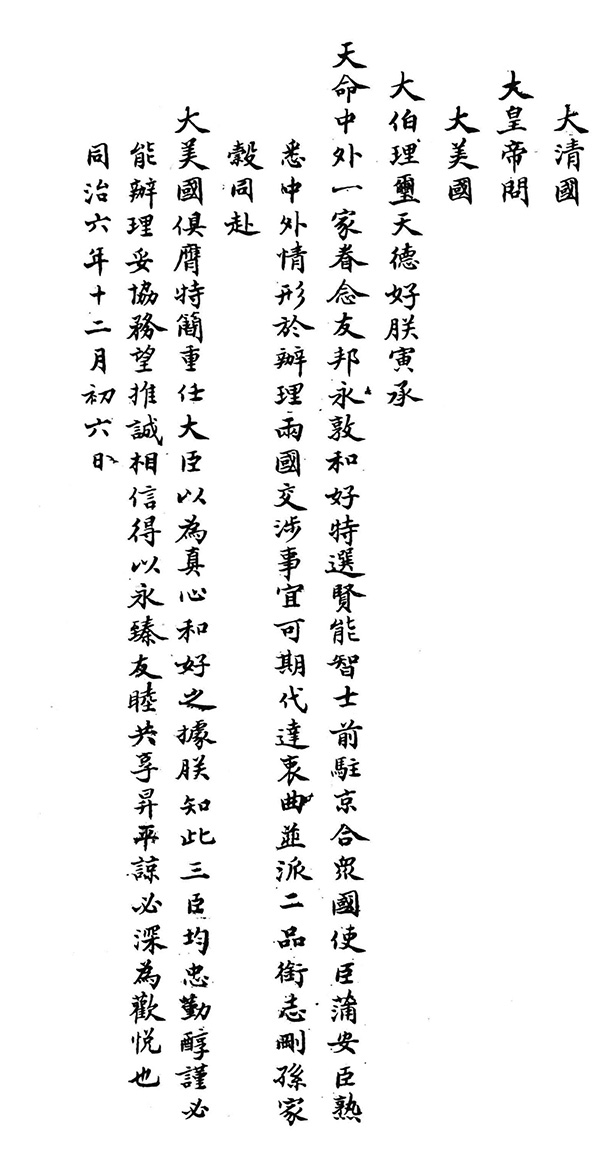 大清國
大皇帝問
大美國
大伯理璽天德好朕寅承
天命中外一家眷念友邦永敦和好特選賢能智士前駐京合眾國使臣蒲安臣熟
悉中外情形於辦理兩國交涉事宜可期代達衷曲並派二品銜志剛孫家
穀同赴
大美國俱膺特簡重任大臣以為真心和好之據朕知此三臣均忠勤醇謹必
能辦理妥協務望推誠相信得以永臻友睦共享昇平諒必深為歡悅也
同治六年十二月初六日